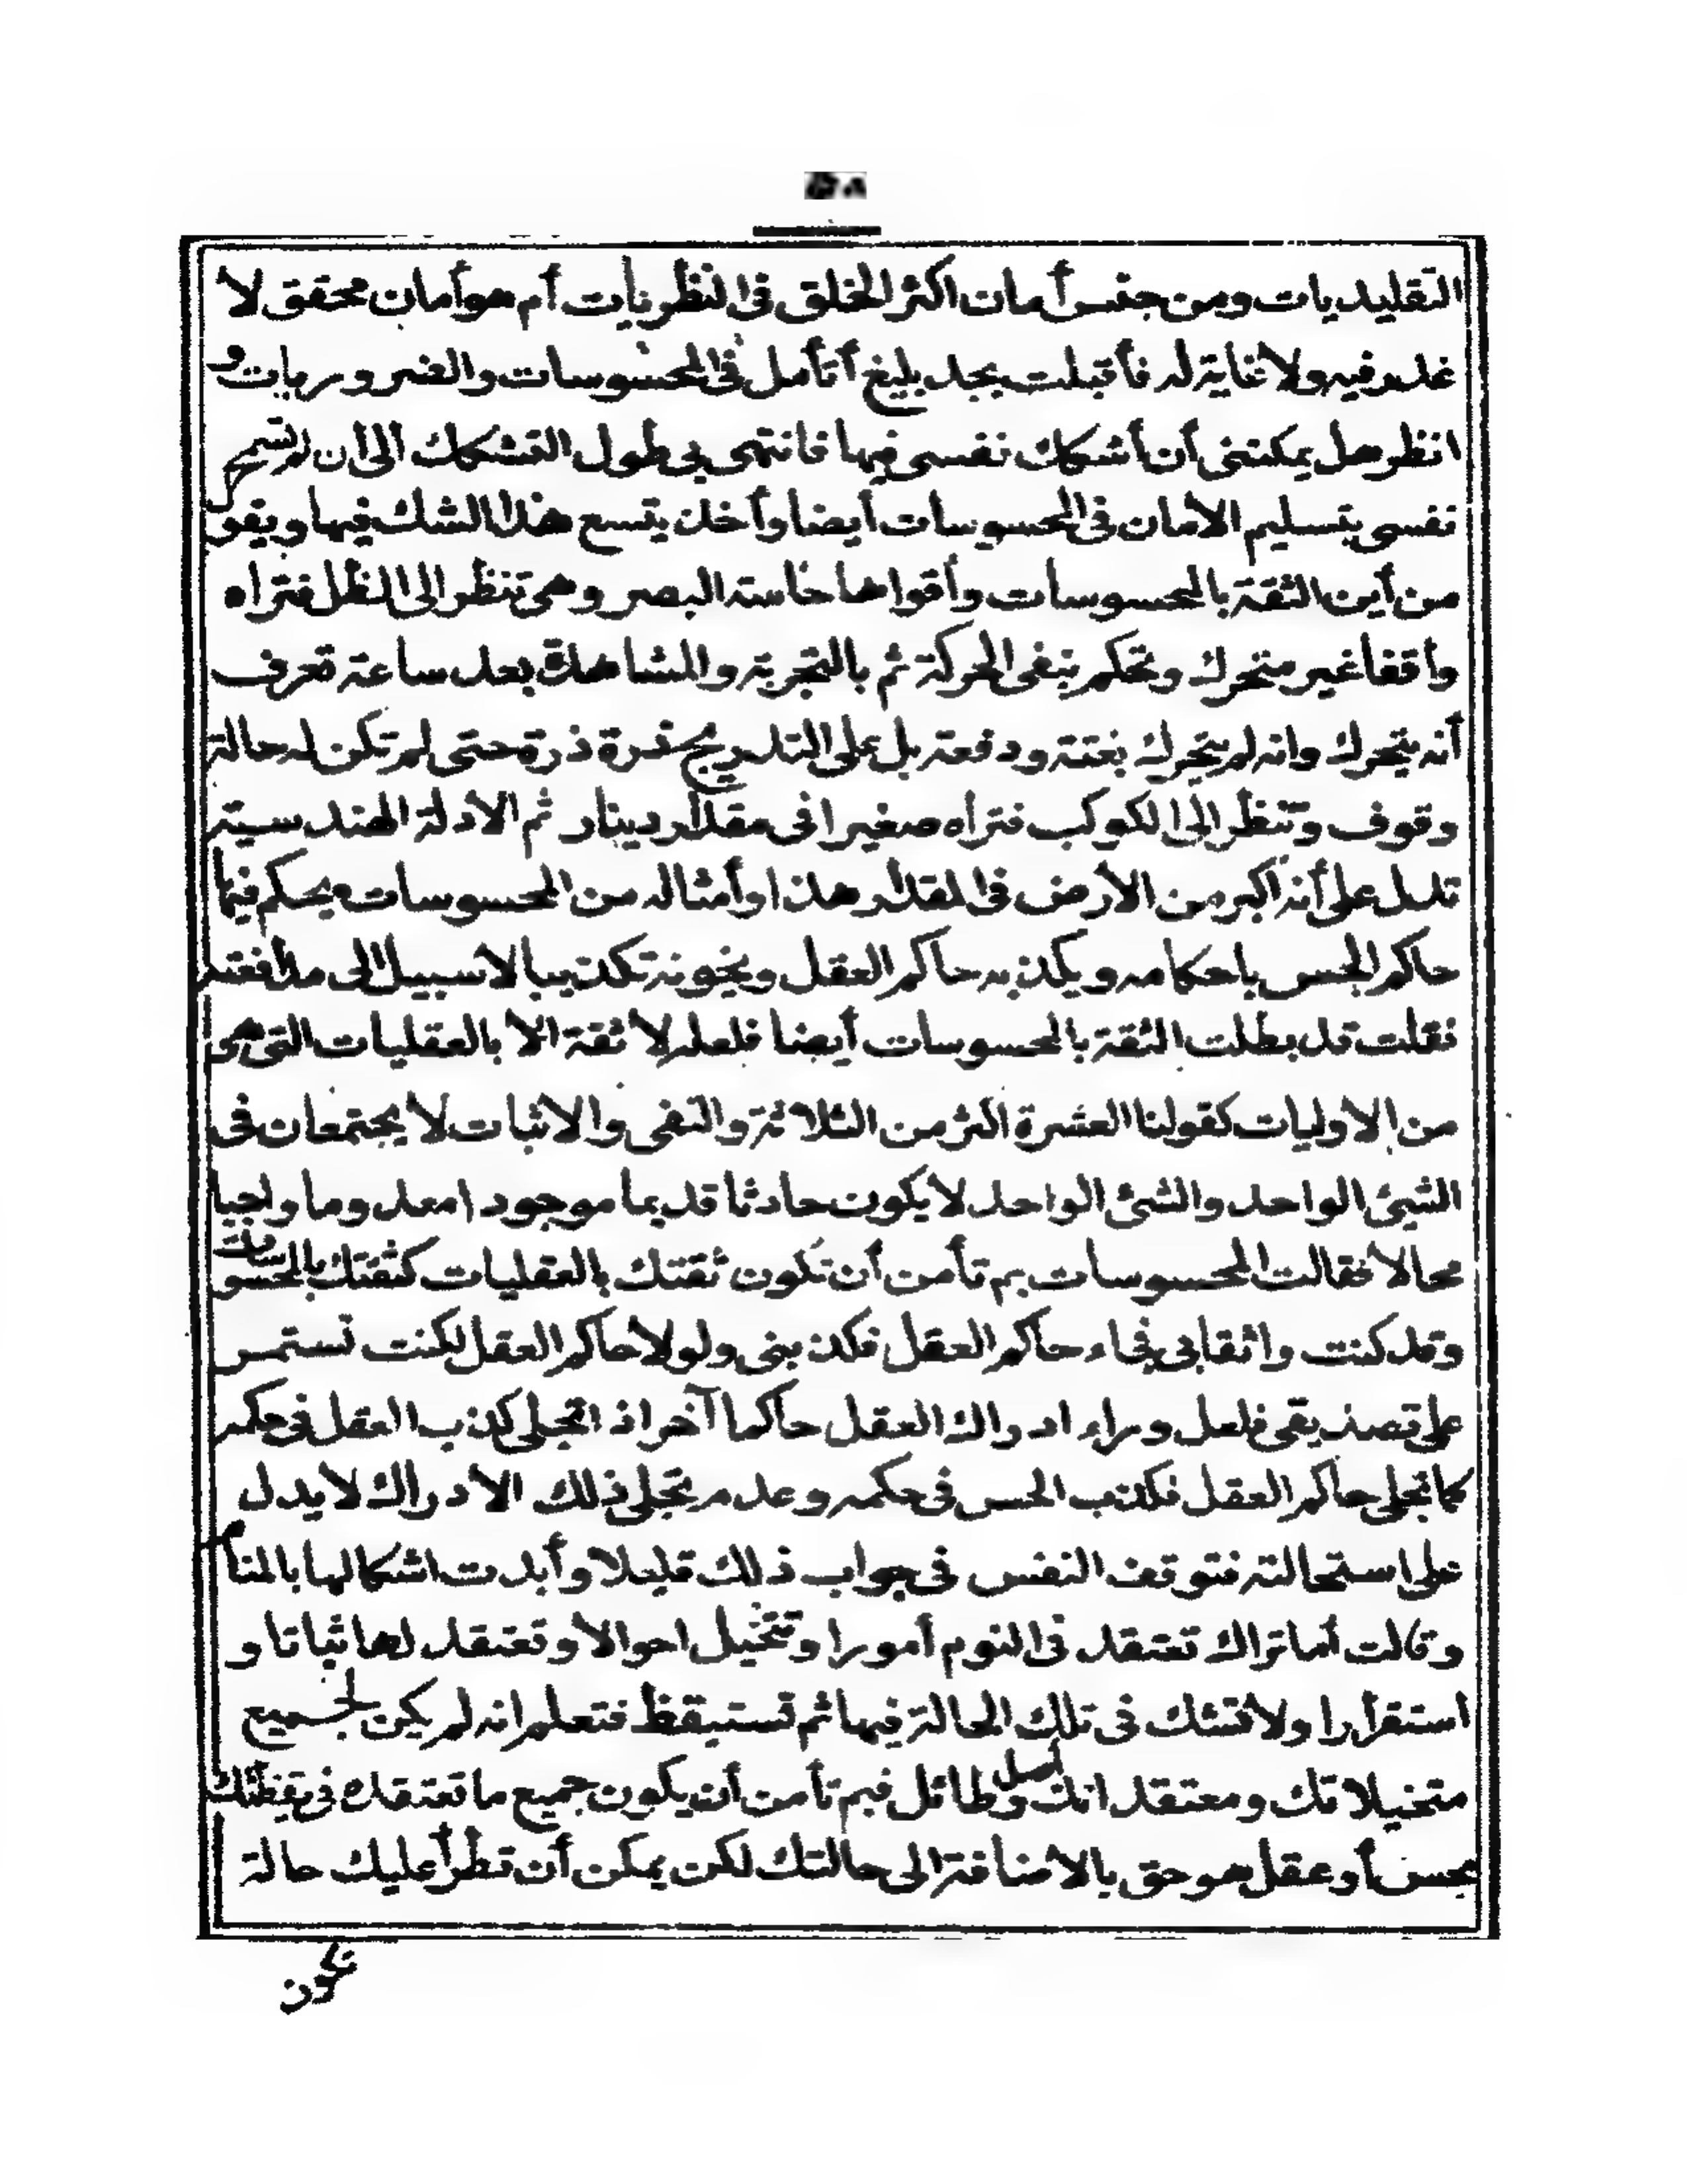 التقليديات ومن جنس أمان اكثر الخلق فى النظريات أم هو أمان محقق لا
غدر فيه ولا غاية له فأقبلت بجد بليغ أتأمل فى المحسوسات والضروريات و
انظر هل يمكننى أن أشكك نفسى فيها فانتهى بى طول التشكك الى أن لم تسمح
نفسى بتسليم الأمان فى المحسوسات أيضا وأخذ يتسع هذا الشك فيها ويقول
من أين الثقة بالمحسوسات وأقواها حاسة البصر وهى تنظر الى الظل فتراه
واقفا غير متحرك وتحكم بنفى الحركة ثم بالتجربة والمشاهدة بعد ساعة تعرف
أنه يتحرك وانه لم يتحرك بغتة ودفعة بل على التدريج ذرة ذرة حتى لم تكن له حالة
وقوف وتنظر الى الكوكب فتراه صغيرا فى مقدار دينار ثم الأدلة الهندسية
تدل على أنه اكبر من الأرض فى المقدار هذا وأمثاله من المحسوسات يحكم فيها
حاكم الحس باحكامه ويكذبه حاكم العقل ويخونه تكذيبا لا سبيل الى مدافعته
فقلت قد بطلت الثقة بالمحسوسات أيضا فلعله لا ثقة الا بالعقليات التى هى
من الاوليات كقولنا العشرة اكثر من الثلاثة والنفى والاثبات لا يجتمعان فى
الشيئ الواحد والشئ الواحد لا يكون حادثا قديما موجودا معدوما واجبا
محالا فقالت المحسوسات بم تأمن أن تكون ثقتك بالعقليات كثقتك بالمحسوسات
وقد كنت واثقا بى فجاء حاكم العقل فكذبنى ولولا حاكم العقل لكنت تستمر
على تصديقى فلعل وراء ادراك العقل حاكما آخر اذ اتجلى كذب العقل فى حكمه
كما تجلى حاكم العقل فكذب الحس فى حكمه وعدم تجلى ذلك الادراك لا يدل
على استحالته فتوقف النفس فى جواب ذلك قليلا وأبدت اشكالها بالمنام
وقالت أما تراك تعتقد فى النوم أمورا وتتخيل احوالا وتعتقد لها ثباتا و
استقرارا ولا تشك فى تلك الحالة فيها ثم تستيقظ فتعلم انه لم يكن لجميع
متخيلاتك ومعتقداتك أصل وطائل فبم تأمن أن يكون جميع ما تعتقده فى يقظتك
بحس أو عقل هو حق بالاضافة الى حالتك لكن يمكن أن تطرأ عليك حالة
تكون